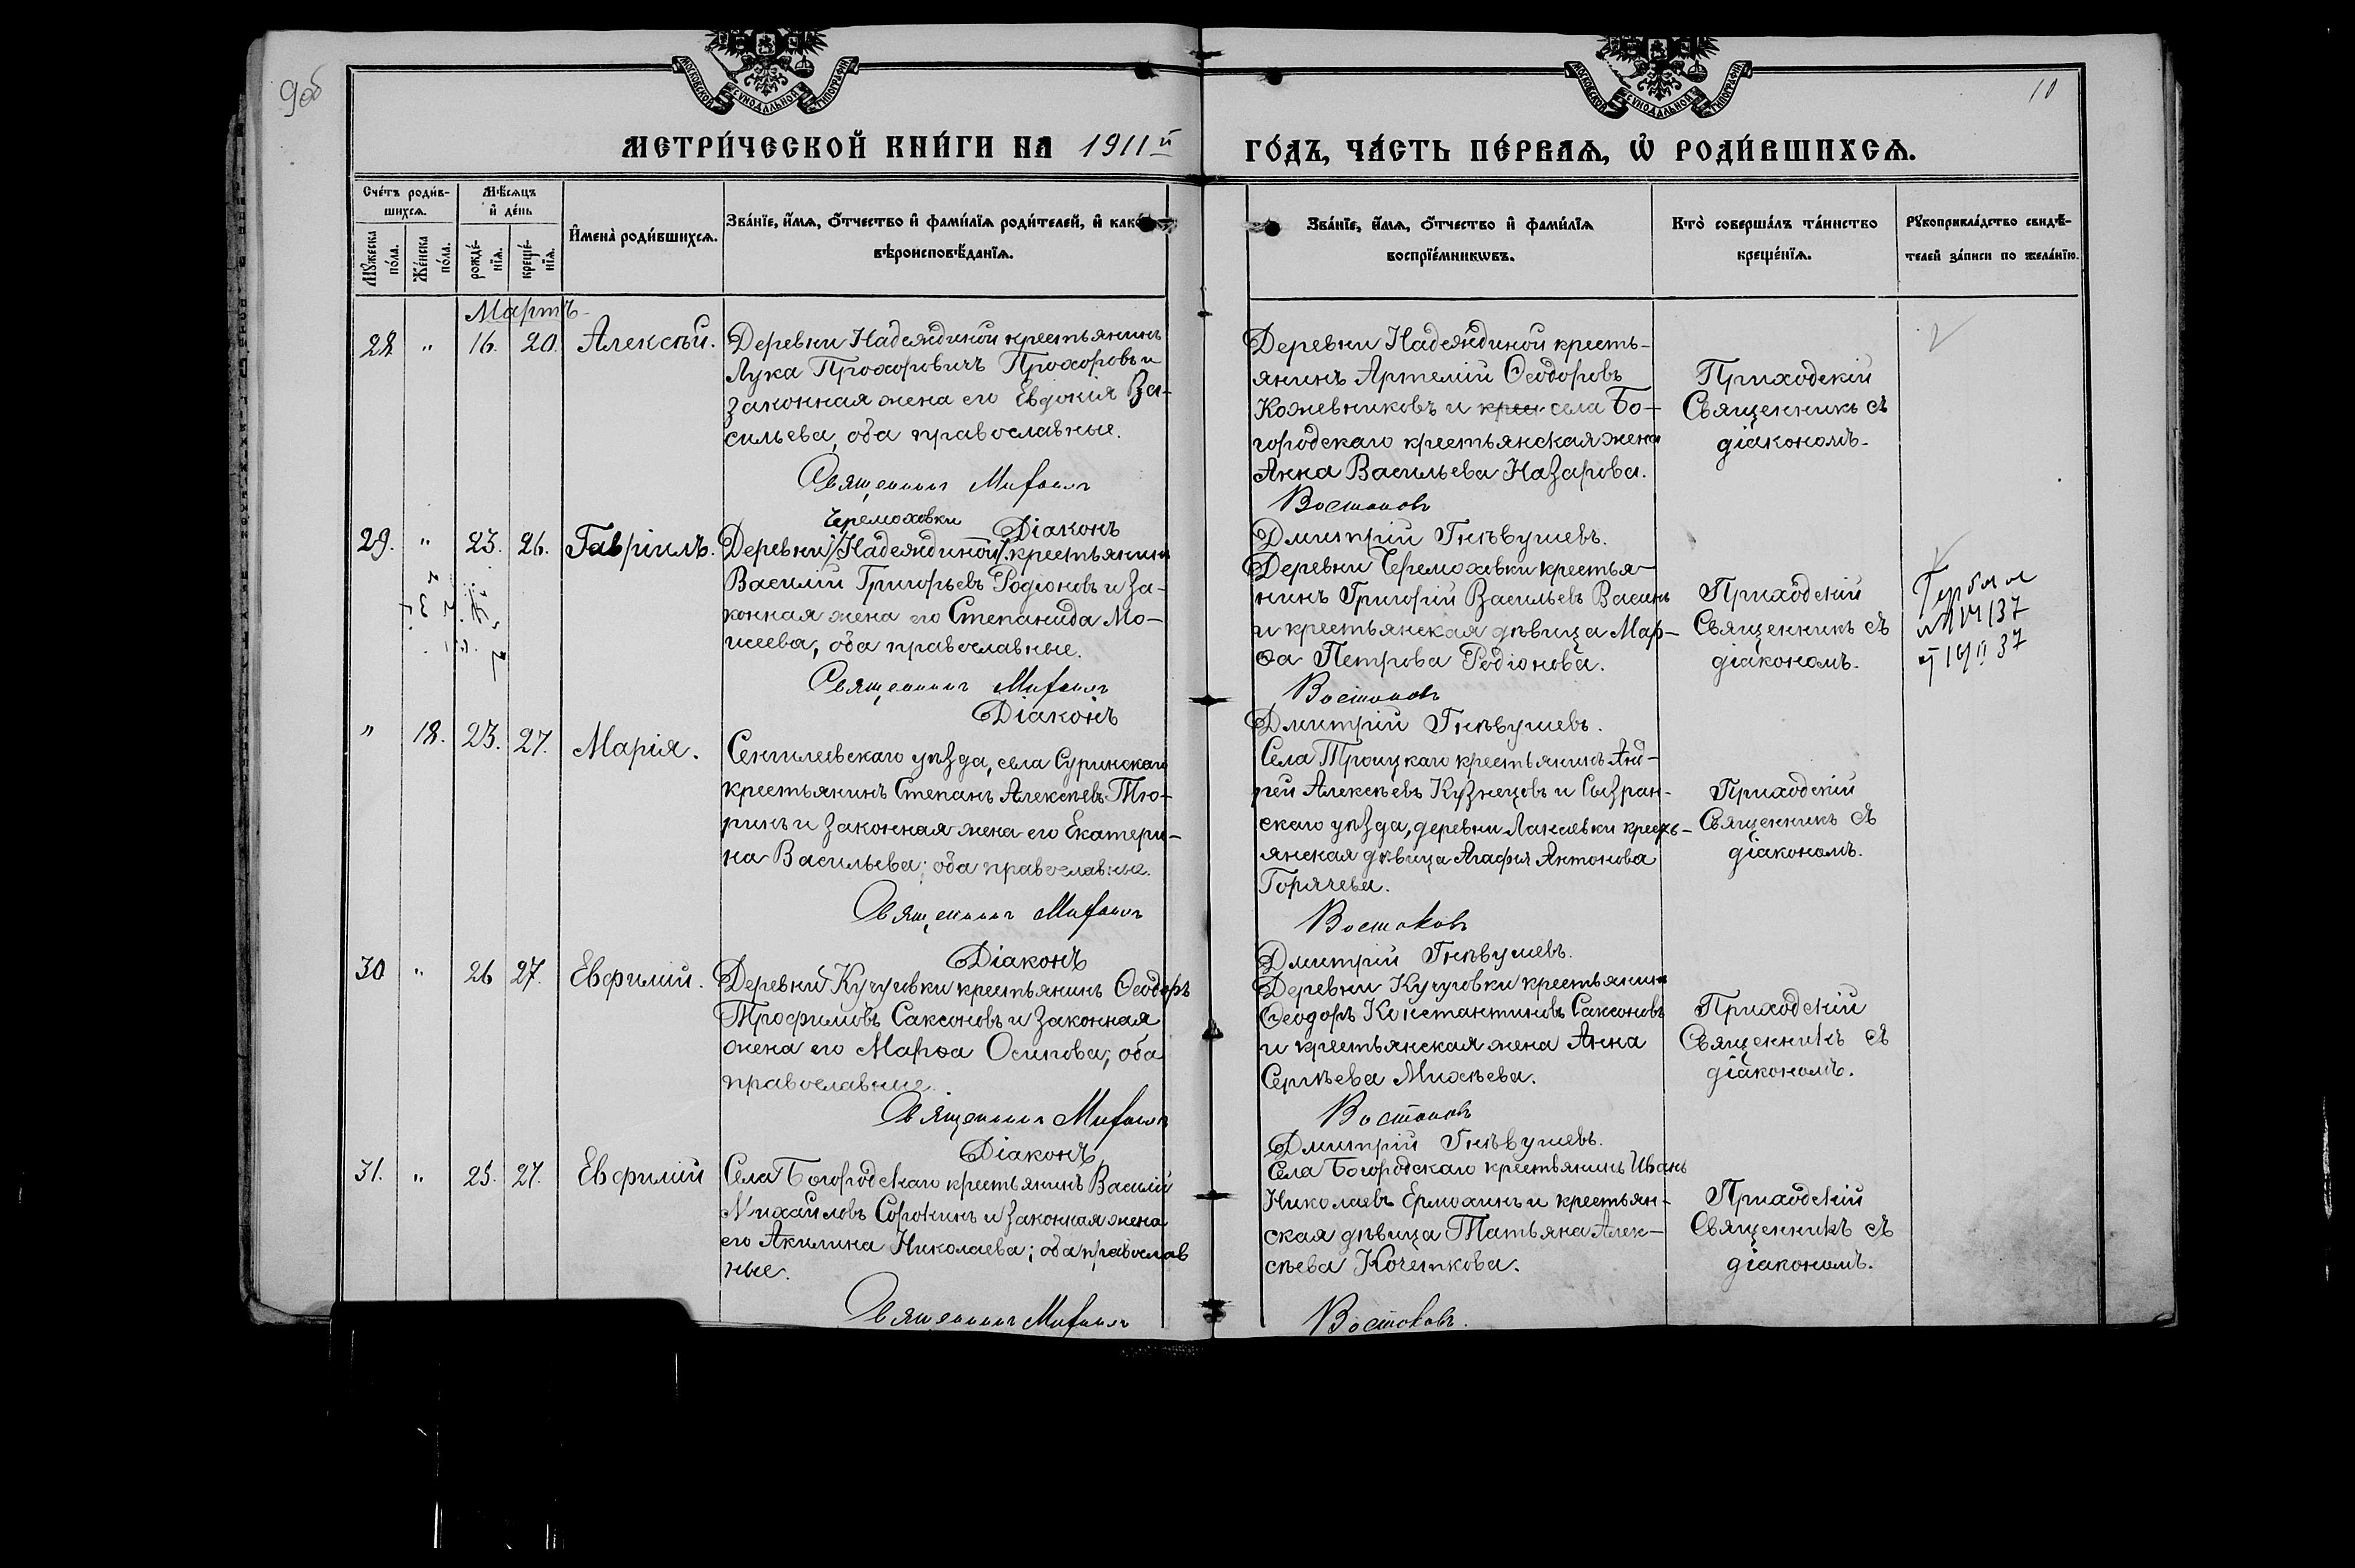 9об
10
МОСКОВСКОЙ СѴНОДАЛЬНОЙ ТИПОГРАФІИ
МОСКОВСКОЙ СѴНОДАЛЬНОЙ ТИПОГРАФІИ
МЕТРИ́ЧЕСКОЙ КНИ́ГИ НА 1911й ГО́ДЪ, ЧА́СТЬ ПЕ́РВАѦ, Ѡ҆ РОДИ́ВШИХСѦ.
Сче́тъ роди́в-
шихсѧ.
Мꙋ́жеска по́ла.
Же́нска по́ла.
Мѣ́сѧцъ
и҆ де́нь
рожде́-
нїѧ.
креще́-
нїѧ.
И҆мена̀ роди́вшихсѧ.
Зва́нїе, и҆́мѧ, ѻ҆́тчество и҆ фами́лїѧ роди́телей, и҆ како́
вѣроисповѣ́данїѧ.
Зва́нїе, и҆́мѧ, ѻ҆́тчество и҆ фами́лїѧ
воспрїе́мникѡвъ.
Кто̀ соверша́лъ та́инство
креще́нїѧ.
Рꙋкоприкла́дство свидѣ́-
телей за́писи по жела́нїю.
Мартъ
28 " 16. 20. Алексѣй.
Деревни Надеждиной крестьянинъ
Лука Прохоровичъ Прохоровъ и
законная жена его Евдокія Ва-
сильева, оба православные.
Священник Михаил
Деревни Надеждиной кресть-
янинъ Артемій Ѳеодоровъ
Кожевниковъ и крес села Бо-
городскаго крестьянская жена
Анна Васильева Назарова.
Востоков
Приходскій
Священникъ съ
діакономъ.
Діаконъ
Дмитрій Гнѣвушевъ.
29. " 23. 26. Гавріилъ.
Черемоховки
Деревни /Надеждиной/ крестьянинъ
Василій Григорьевъ Родіоновъ и за-
конная жена его Степанида Мо-
исеева, оба православные.
Священник Михаил
Деревни Черемоховки крестья-
нинъ Григорій Васильевъ Васинъ
и крестьянская дѣвица Мар-
ѳа Петрова Родіонова.
Востоков
Приходскій
Священникъ съ
діакономъ.
Діаконъ
Дмитрій Гнѣвушевъ.
" 18. 23. 27. Марія.
Сенгилеевскаго уѣзда, села Суринскаго
крестьянинъ Степанъ Алексѣевъ Тю-
ринъ и законная жена его Екатери-
на Васильева; оба православные.
Священник Михаил
Села Троицкаго крестьянинъ Анд-
рей Алексѣевъ Кузнецовъ и Сызран-
скаго уѣзда, деревни крест-
янская дѣвица Агафія Антонова
Горячева.
Востоков
Приходскій
Священникъ съ
діакономъ.
Діаконъ
Дмитрій Гнѣвушевъ.
30 " 26 27. Евфимій.
Деревни Кучуговки крестьянинъ Ѳеодоръ
Трофимовъ Саксоновъ и законная
жена его Марѳа Осипова; оба
православные.
Священник Михаил
Деревни Кучуговки крестьянинъ
Ѳеодоръ Константиновъ Саксоновъ
и крестьянская жена Анна
Сергѣева Михѣева.
Востоков
Приходскій
Священникъ съ
діакономъ.
Діаконъ
Дмитрій Гнѣвушевъ.
31. " 25. 27. Евфимій
Села Богородскаго крестьянинъ Василій
Михайловъ Сорокинъ и законная жена
его Акилина Николаева; оба православ
ные.
Священник Михаил
Села Богородскаго крестьянинъ Иванъ
Николаевъ Ермохинъ и крестьян-
ская дѣвица Татьяна Алек-
сѣева Кочеткова.
Востоковъ.
Приходскій
Священникъ съ
діакономъ.